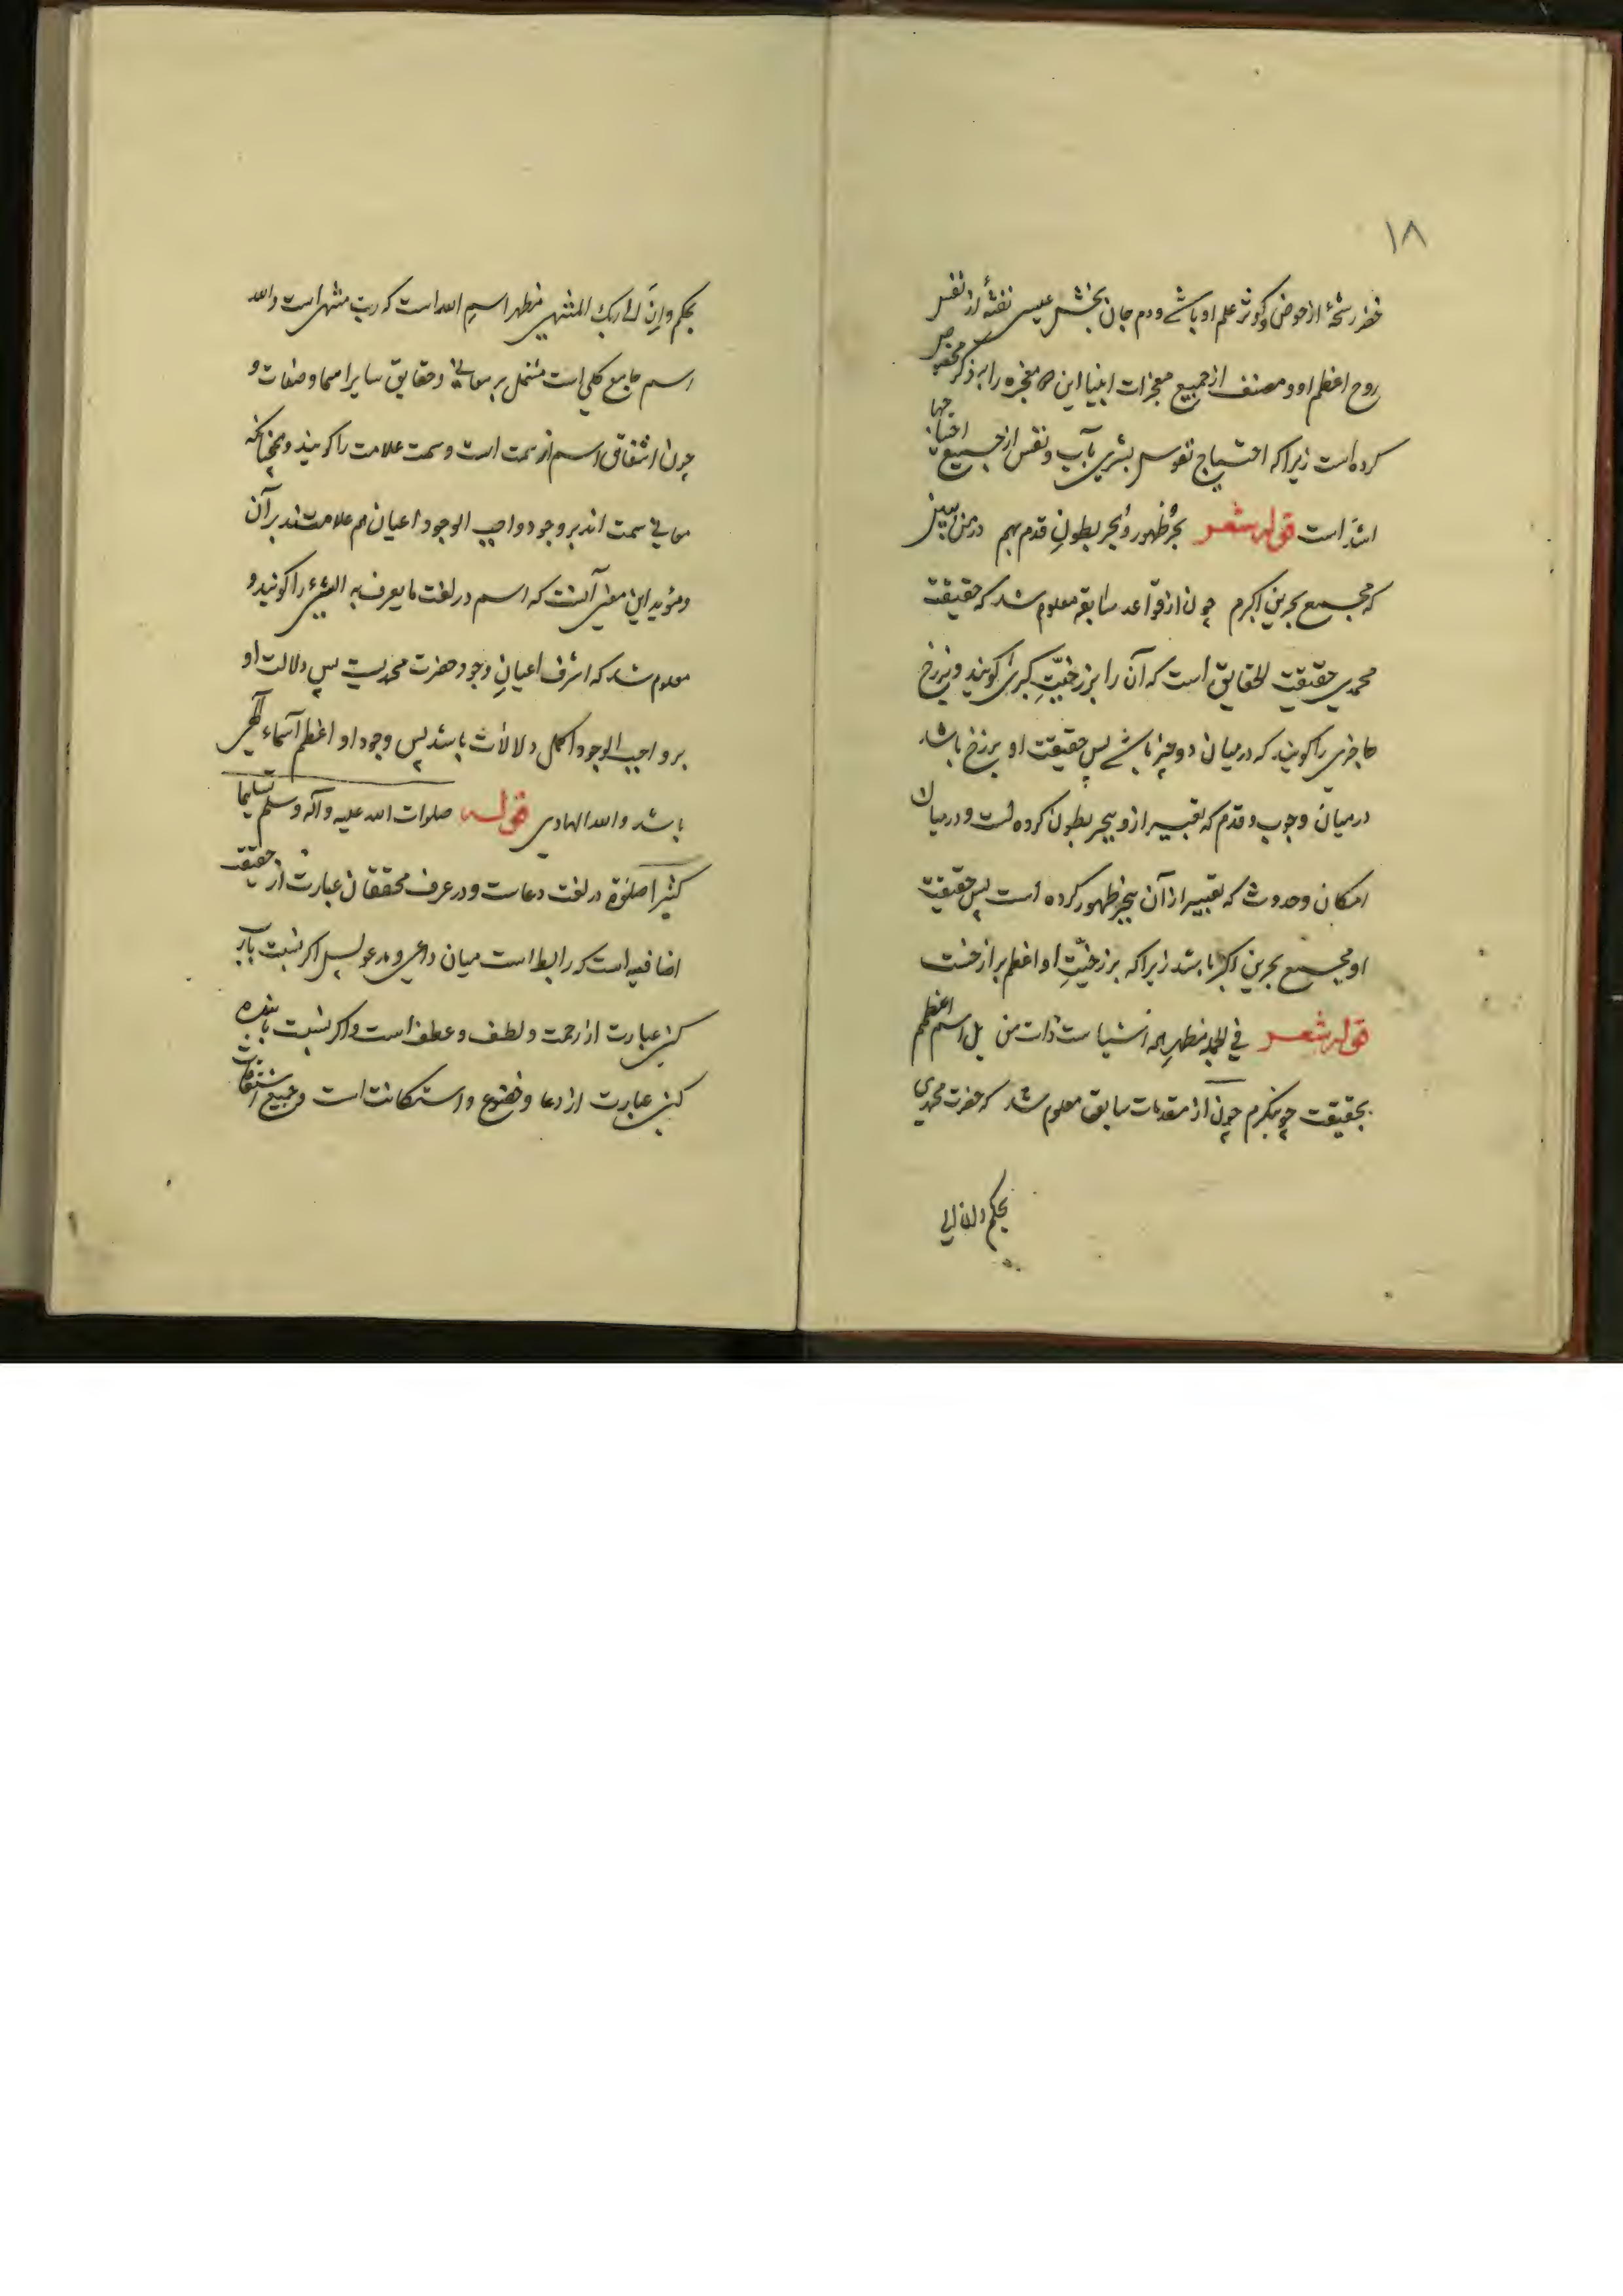 ١٨
خضر رشحهٔ از حوض و کوثر علم او باشد و دم جان بخش عیسی نفثهٔ از نفس
روح اعظم او و مصنف از جمیع معجزات انبیا این معجزه را بذکر مخصوص
کرده است زیرا که احتیاج نفوس بشری بآب و نفس از جمیع احتیاجها
اشد است قوله شعر بحر ظهور و بحر بطون قدم بهم در من ببین
که مجمع بحرین اکبرم چون از قواعد سابقه معلوم شد که حقیقت
محمدی حقیقت الحقایق است که آن را برزخیّتِ کبری کویند و برزخ
حاجزی را کویند که درمیان دو چیز باشد پس حقیقت او برزخ باشد
درمیان وجوب و قدم که تعبیر ازو ببحر بطون کرده است و درمیان
امکان و حدوث که تعبیر از آن ببحر ظهور کرده است پس حقیقت
او مجمع بحرین اکبر باشد زیرا که برزخیّتِ او اعظم برازخست
قوله شعر فی الجمله مظهر همه اشیاست ذات من بل اسم اعظم
بحقیقت چو بنکرم چون از مقدمات سابق معلوم شد که حضرت محمدی
بحکم و ان الی
بحکم و اِنّ اِلی ربک المنتهی مظهر اسم الله است که رب منتهی است و الله
اسم جامع کلی است مشتمل بر معانی و حقایق سایر اسما و صفات و
چون اشتقاق اسم از سمت است و سمت علامت را کویند و همچنانکه
معانی سمت اند بر وجود واجب الوجود اعیان هم علامتند بر آن
و مؤید این معنی آنست که اسم در لغت ما یعرف به الشیء را کویند و
معلوم شد که اشرف اعیانِ وجود حضرت محمدیست پس دلالت او
بر واجب الوجود اکمل دلالات باشد پس وجود او اعظم اسماء الهی
باشد و الله الهادی قوله صلوات الله علیه و آله و سلم تسلیما
کثیرا صلوة در لغت دعاست و در عرف محققان عبارت از حقیقت
اضافیه است که رابط است میان داعی و مدعو پس اکر نسبت بارب
کنی عبارت از رحمت و لطف و عطف است و اکر نسبت با بنده
کنی عبارت از دعا و خضوع و استکانت است و جمیع اشتقاقات